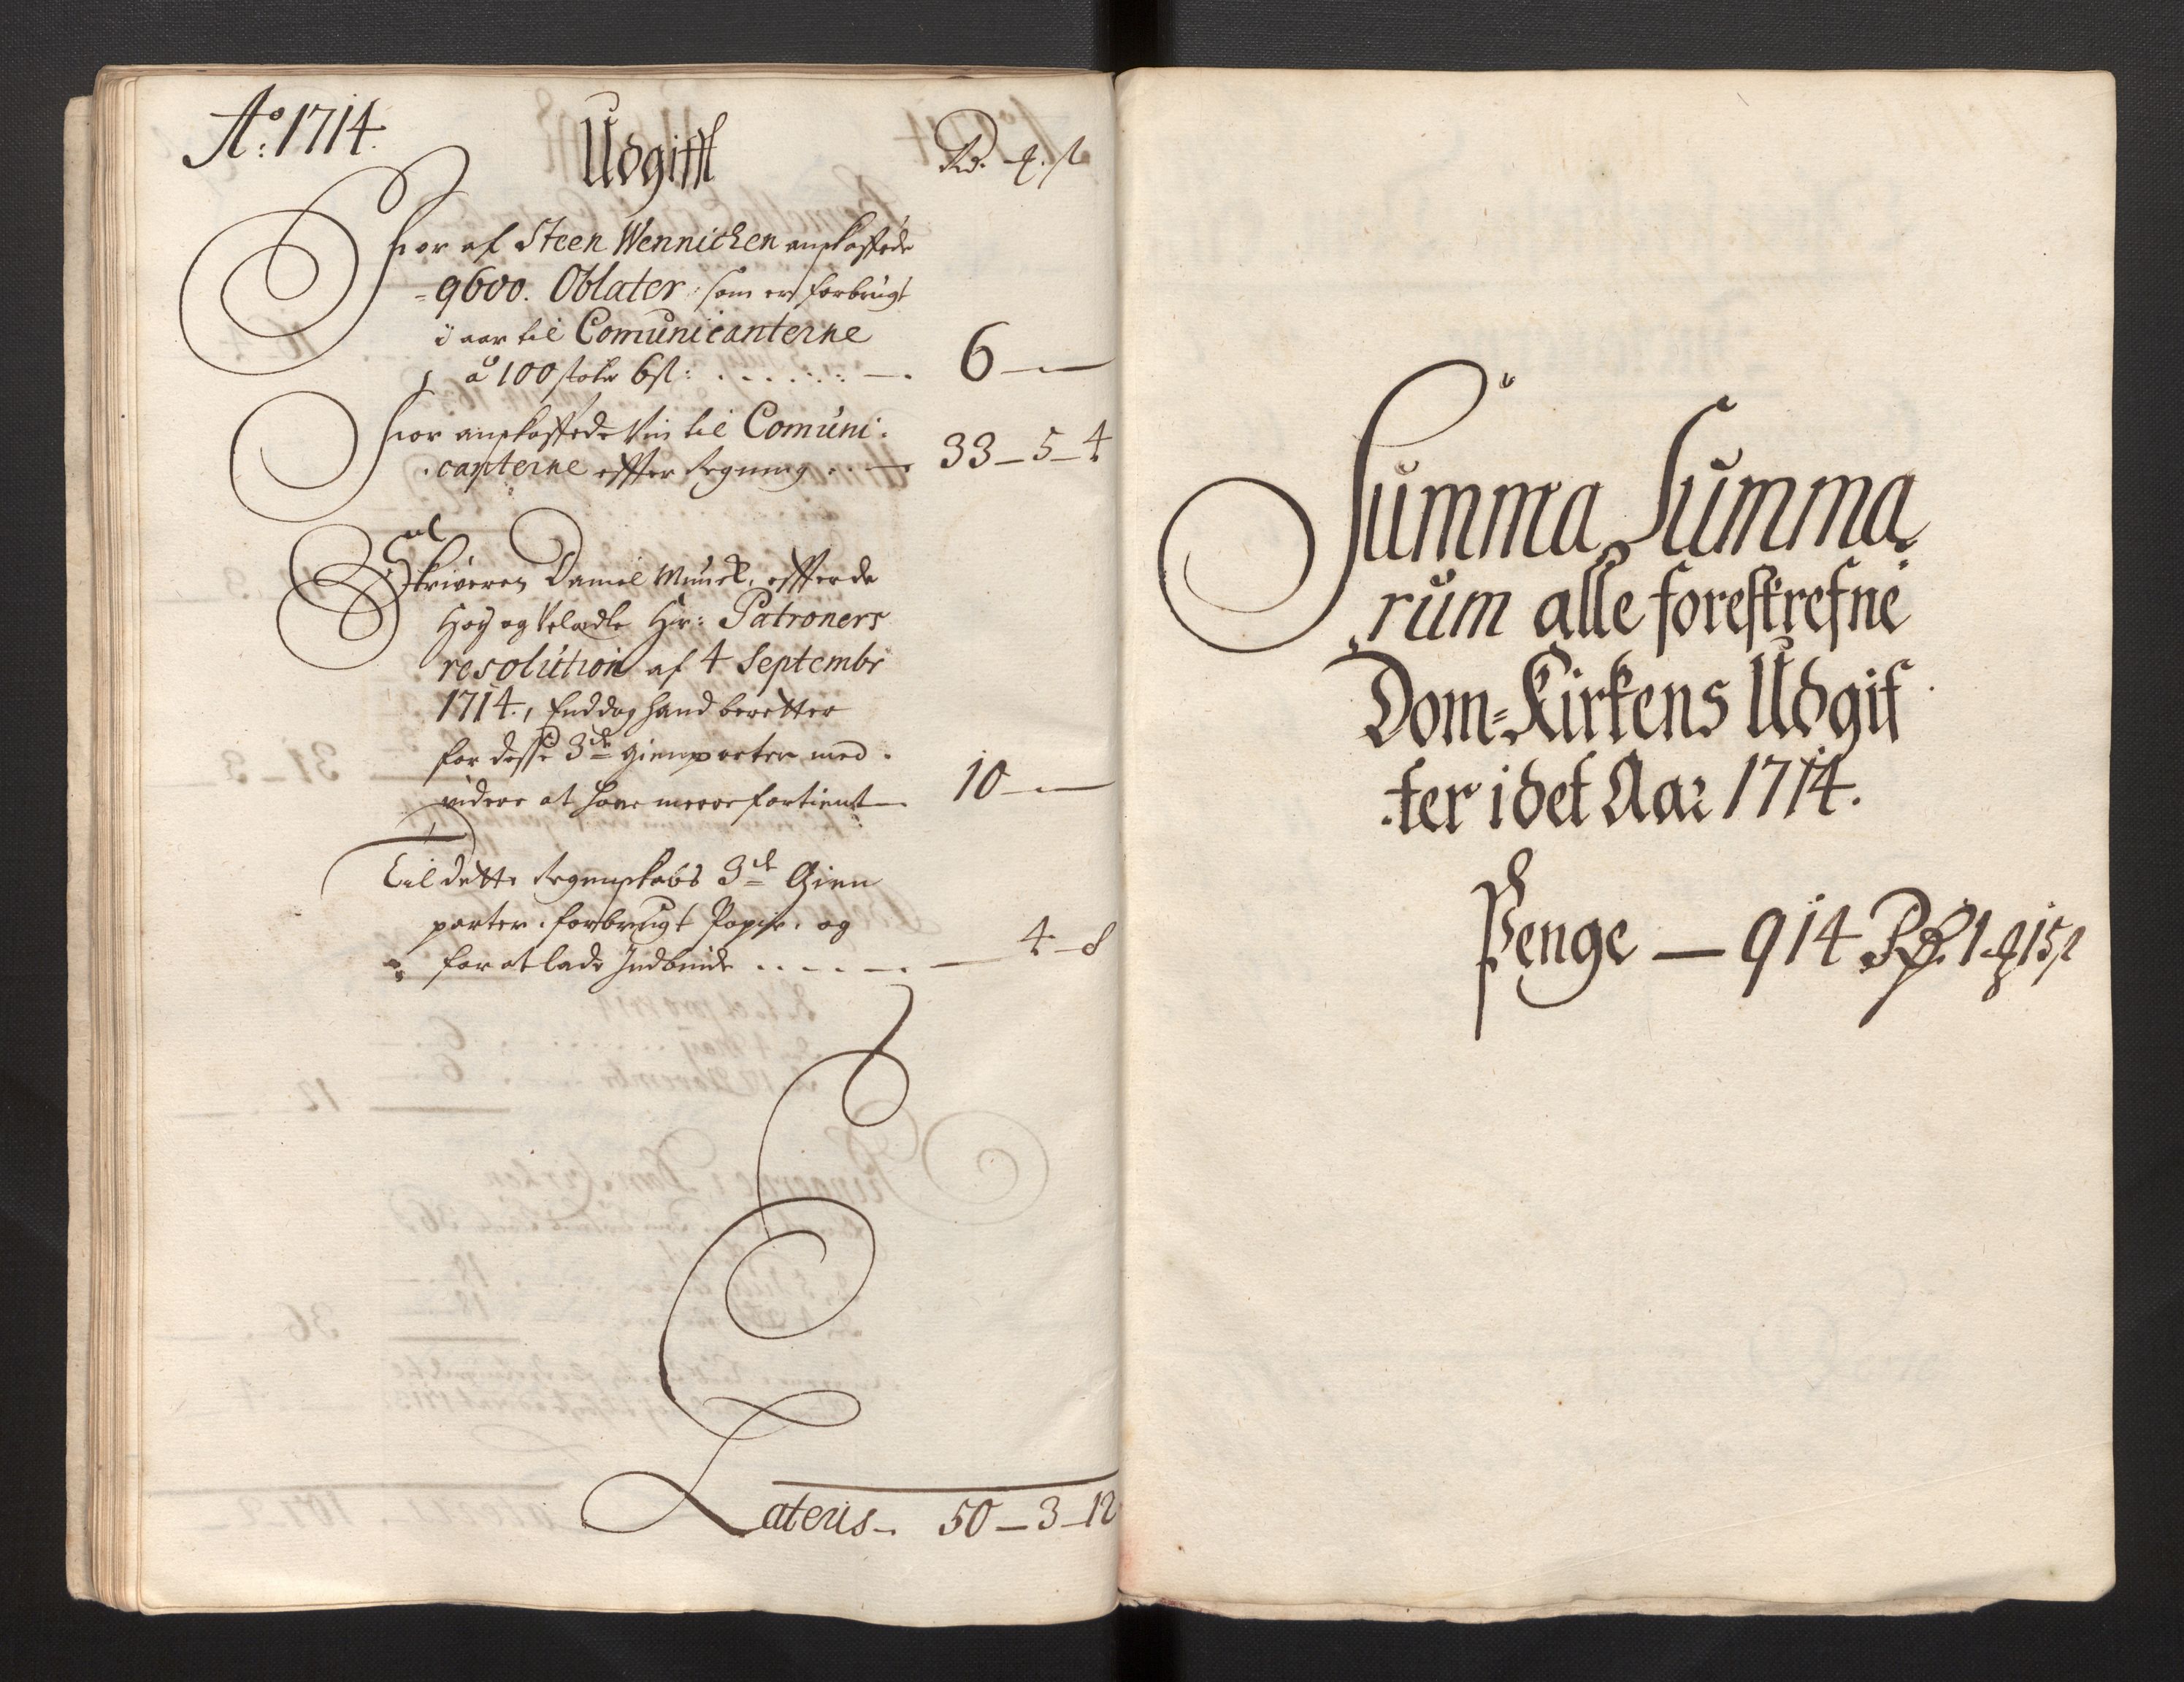 Aº: 1714.
Udgifft
Rd. ꝶ. ß
For af Steen Wennichen anskaffede
9600. Oblater: som er forbrugt
i aar til Comunicanterne
â 100 støche 6ß: 6 — —
For anskaffede Vin til Comuni-
canterne effter Regning 33 – 5 – 4
Skriveren Daniel Munck, effter de
Høy og Velædle Hr: Patroners
resolution af 4 Septembr
1714., End dog hand beretter
for disse 3de gienparter med
videre at have meere fortient 10 — —
Til dette Regenskabs 3de Gien
parter forbrugt Papir, og
for at lade Indbinde 4 – 8
Lateris 50 – 3 – 12
Summa Summa
rum alle forestrefne
Dom-Kirkens Udgif
ter i det Aar 1714.
Penge — 914 Rd. 1 ꝶ 15 ß